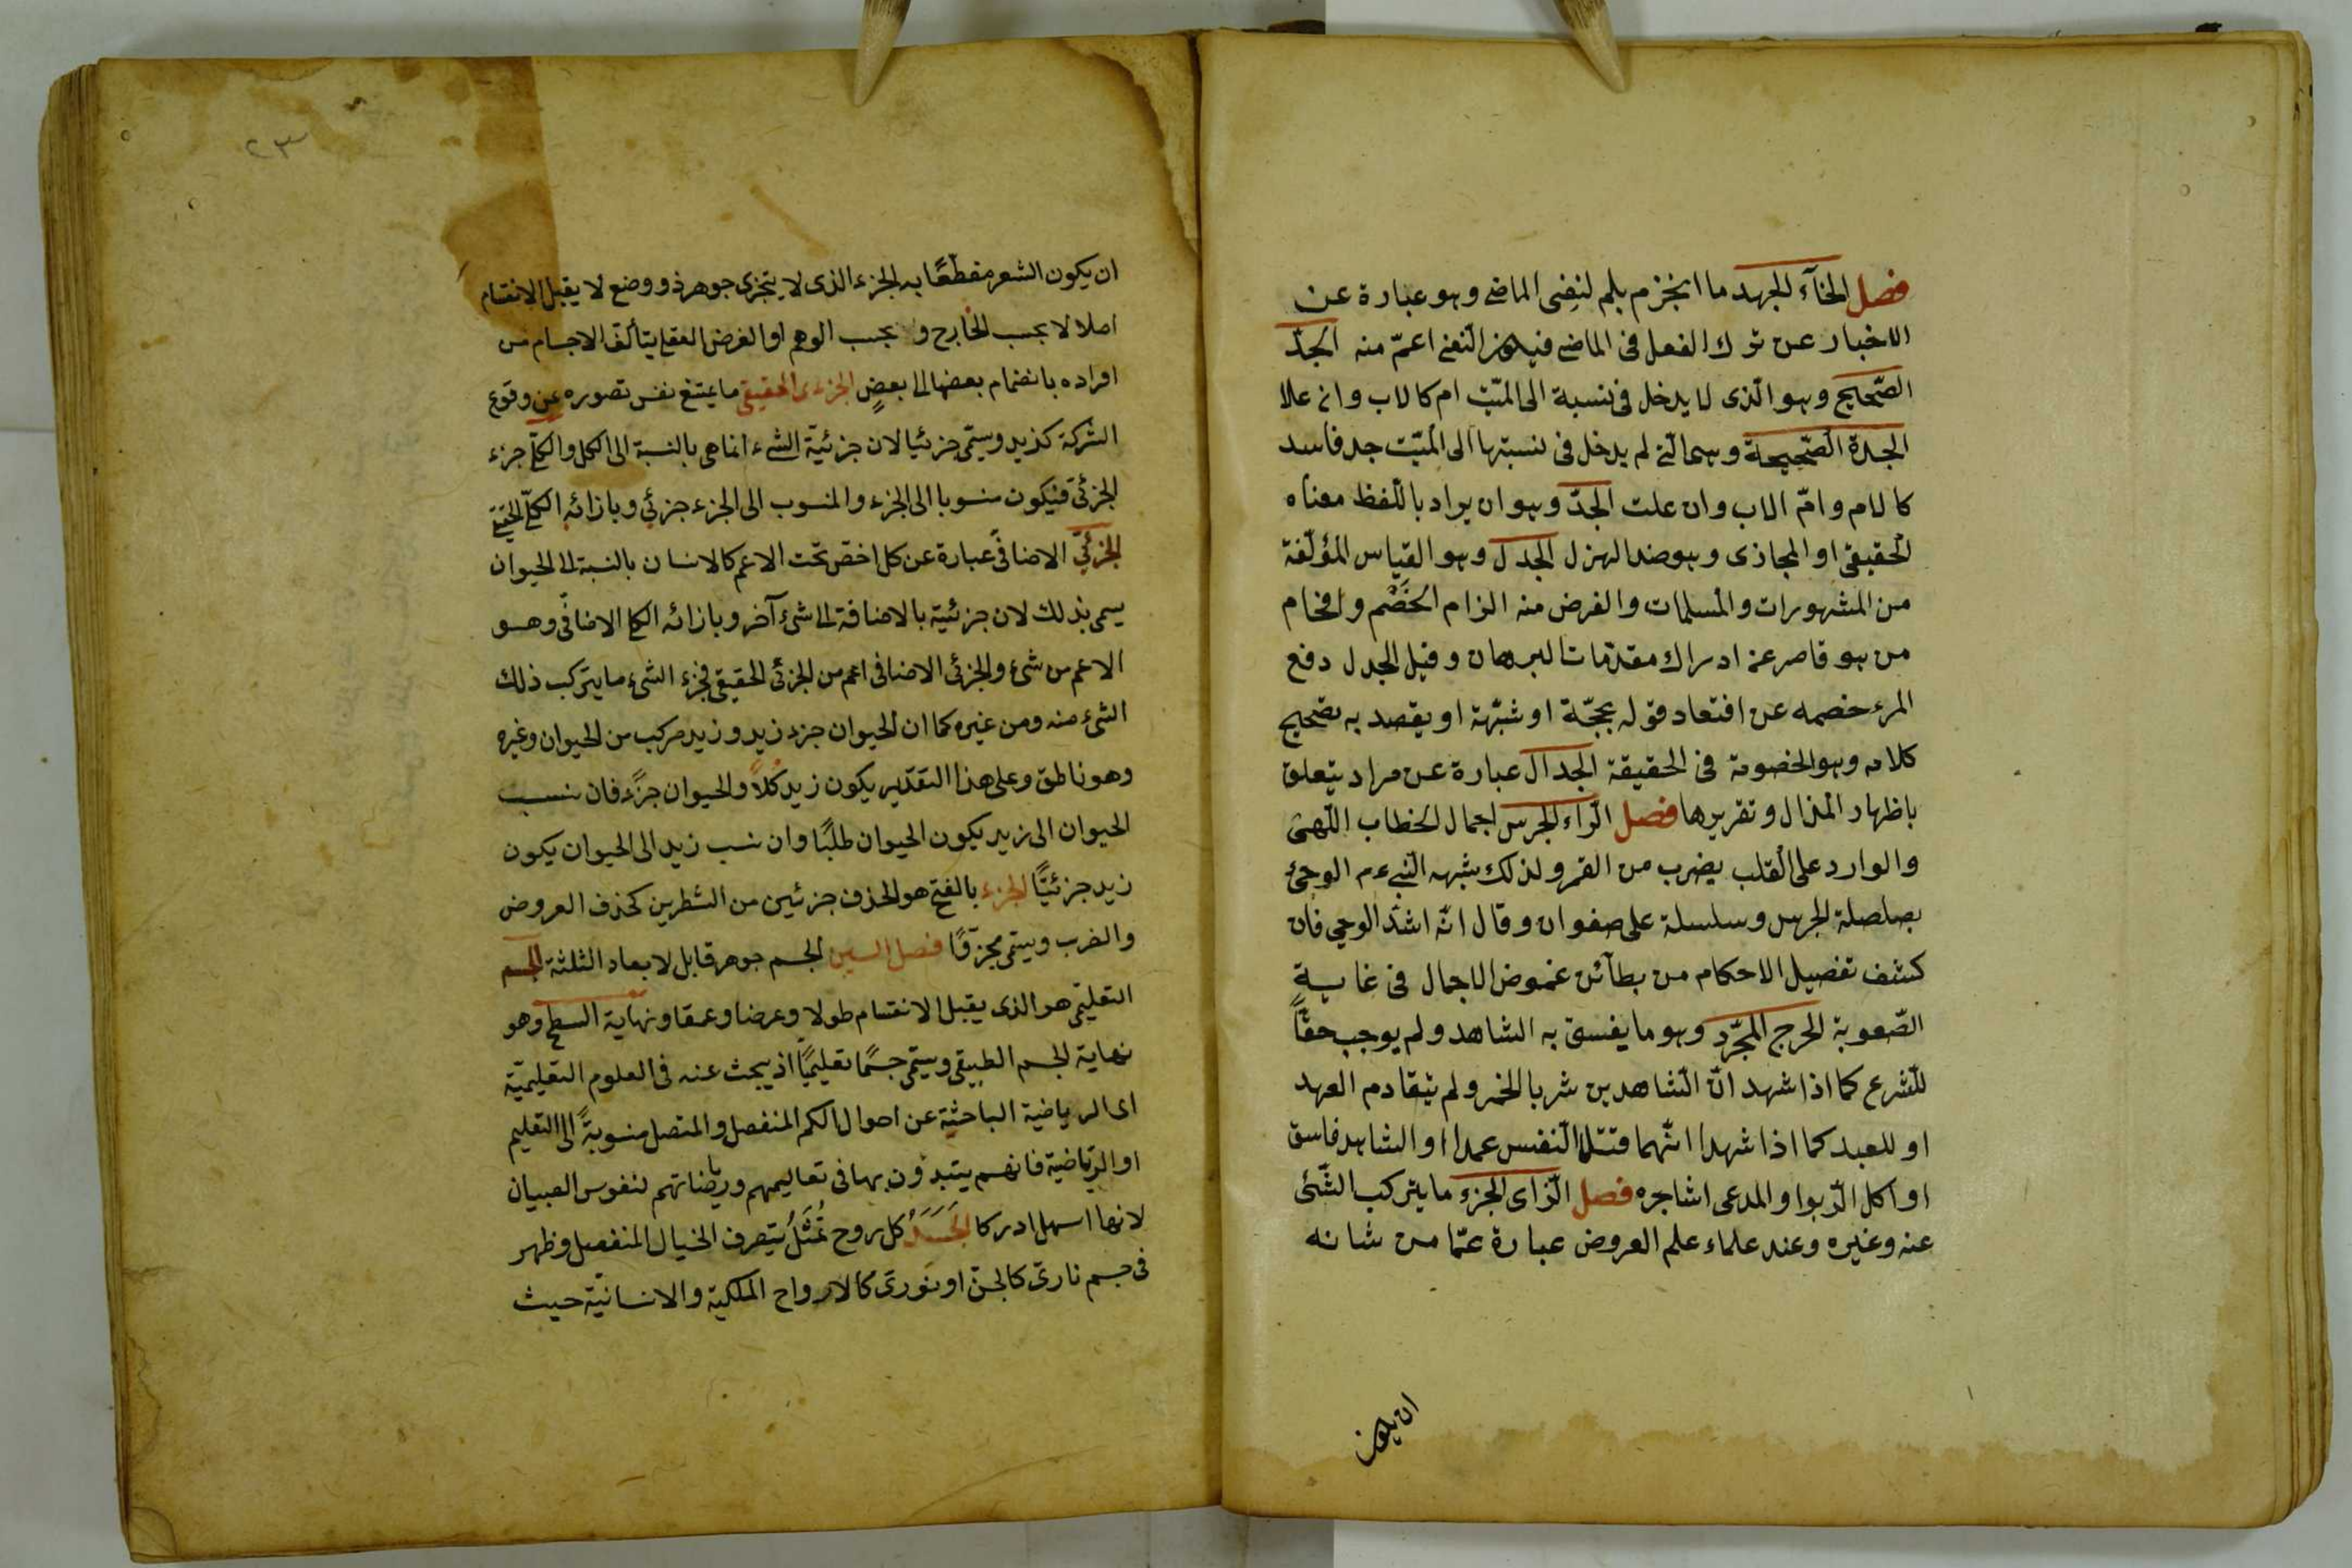 فصل الحآء الجهد ما انجزم بلم لنفى الماضى وهو عبارة عن
الاخبار عن ترك الفعل فى الماضى فيكون النفى اعمّ منه الجدّ
الصّحيح وهو الّذى لا يدخل فى نسبة الى الميّت ام كالاب وان علا
الجدة الصّحيحة وهى التى لم يدخل فى نسبتها الى الميّت جد فاسد
كالام وامّ الاب وان علت الجدّ وهو ان يراد باللّفظ معناه
الحقيقى او المجازى وهو ضد الهزل الجدل وهو القياس المؤلّفة
من المشهورات والمسلمات والغرض منه الزام الخَصْم وافحام
من هو قاصر عن ادراك مقدّمات البرهان وقيل الجدل دفع
المرء خصمه عن افتعاد قوله بحجّة او شبّهة او يقصد به تصحيح
كلامه وهو الخصومة فى الحقيقة الجدال عبارة عن مراد يتعلق
باظهار المذال وتقريرها فصل الرّاء الجرس اجمال الخطاب اللّهىّ
والوارد على القلب بضرب من القهر ولذلك شبّهه النّبىء م الوحىَ
بصلصلة الجرس وسلسلة على صفوان وقال انّه اشدّ الوحى فان
كشف تفصيل الاحكام من بطآئن غموض الاجمال فى غاية
الصّعوبة الحرج المجرّد وهو ما يفسق به الشاهد ولم يوجب حقّاً
للّشرع كما اذا شهد انّ الشّاهدين شربا الخمر ولم يتقادم العهد
او للعبد كما اذا شهدا انّهما قتلا النّفس عمدا او الشاهد فاسق
او اكل الرّبوا والمدعى اشاجره فصل الزّاى الجزء ما يتركب الشّئ
عنه وغيره وعند علماء علم العروض عبارة عمّا من شانه
ان يكون
٢٣
ان يكون الشعر مقطّعًا به الجزء الذى لا يتجزى جوهر ذو وضع لا يقبل الانقسام
اصلا لا بحسب الخارج ولا بحسب الوهم او الفرض العقلى يتألف الاجسام من
افراده بانضمام بعضها الى بعضٍ الجزءى الحقيقى ما يمتنع نفس تصوره عن وقوع
الشركة كزيد ويسمّى جزئيا لان جزئيّة الشىء انما هى بالنسبة الى الكل والكلّى جزء
الجزئىّ فيكون منسوبا الى الجزء والمنسوب الى الجزء جزئي وبازائه الكلّى الحقيقى
الجزئيّ الاضافىّ عبارة عن كل اخصّ تحت الاعم كالانسان بالنسبة الى الحيوان
يسمى بذلك لان جزئيّة بالاضافة الى شئ آخر وبازائه الكلى الاضافّى وهو
الاعم من شئ والجزئى الاضافى اعم من الجزئى الحقيقى فجزء الشىء ما يتركب ذلك
الشئ منه ومن غيره كما ان الحيوان جزء زيد وزيد مركب من الحيوان وغيره
وهو ناطق وعلى هذا التقدير يكون زيد كلاً والحيوان جزًء فان نسب
الحيوان الى زيد يكون الحيوان طلبًا وان نسب زيد الى الحيوان يكون
زيد جزئيًّا الجزء بالفتح هو الحذف جزئين من الشطرين كحذف العروض
والضرب ويسمّى مجزوًّا فصل السين الجسم جوهر قابل لابعاد الثلثة الجسم
التعليّمى هو الذى يقبل الانقسام طولا وعرضا وعمقا ونهاية السطح وهو
نهاية الجسم الطبيعى ويسمّى جسمًا تعليميًّا اذ يبحث عنه فى العلوم التعليميّة
اى الرياضية الباحثية عن احوال الكم المنفصل والمتصل منسوبةً الى التعليم
او الريّاضية فانهم يبتدؤن بها فى تعاليمهم ورياضاتهم لنفوس الصبيان
لانها اسهل ادركا الجَسَدُ كل روح تُمثَّلُ بتصرف الخيال المنفصل وظهر
فى جسم نارىّ كالجنّ او نورىّ كالارواح الملكية والانسانيّة حيث